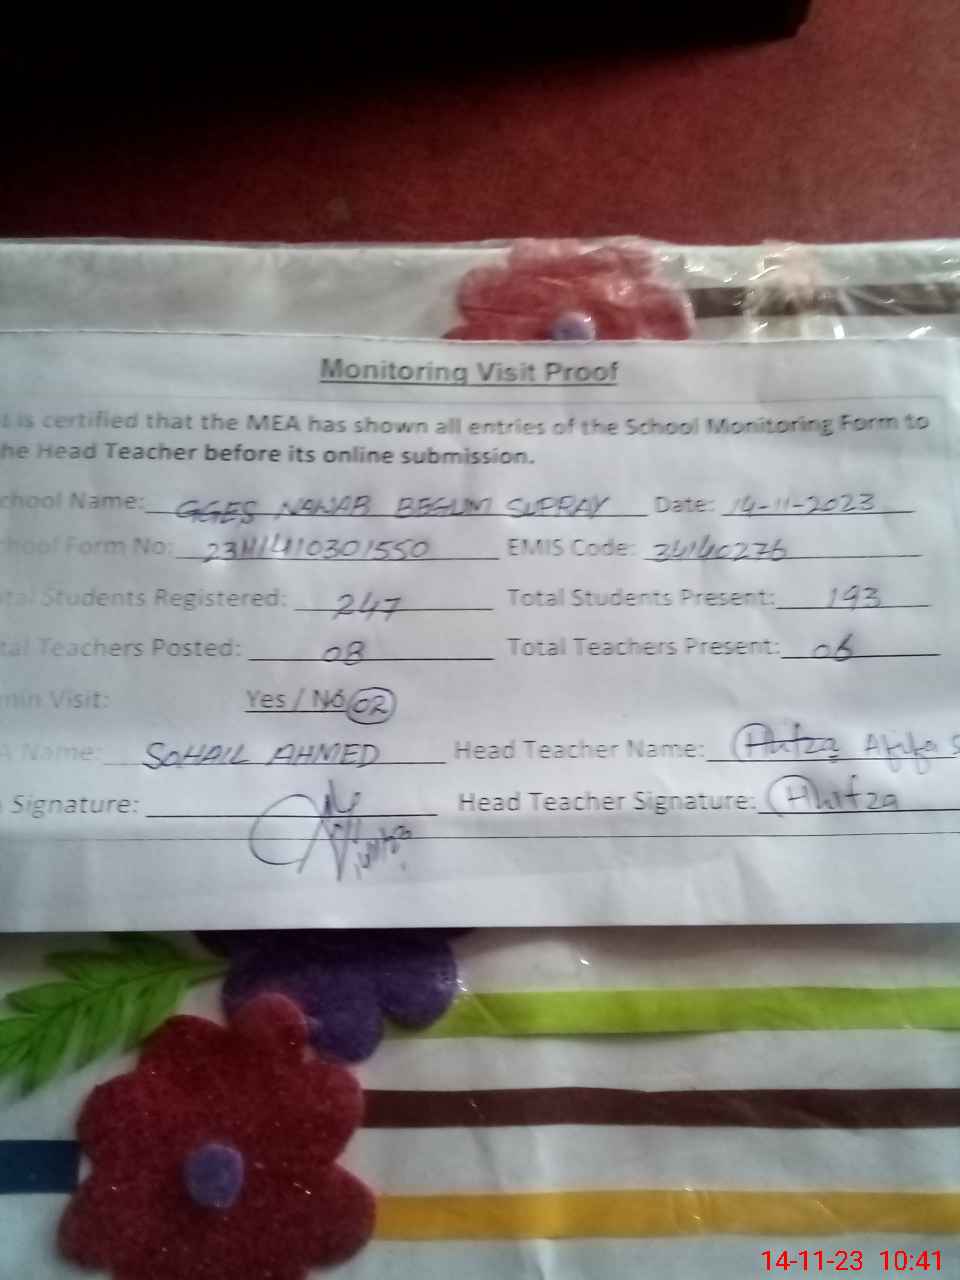 Monitoring Visit Proof
t is certified that the MEA has shown all entries of the School Monitoring Form to
he Head Teacher before its online submission.
chool Name: GGES NAWAB BEGUM SUPRAY Date: 14-11-2023
chool Form No: 23111410301550 EMIS Code: 34140276
tal Students Registered: 247 Total Students Present: 193
tal Teachers Posted: 08 Total Teachers Present: 06
min Visit: Yes / No 02
A Name: SOHAIL AHMED Head Teacher Name: Afifa S
Signature: Head Teacher Signature:
14-11-23 10:41